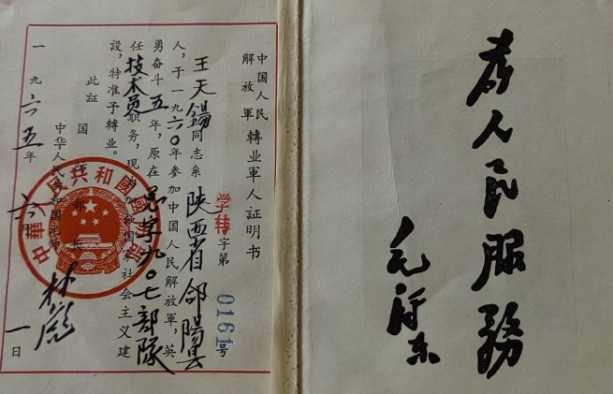 中国人民
解放軍
轉業軍人証明书
学转字第0161号
王天錫同志系陝西省郃陽县
人，于一九六〇年参加中国人民解放軍，英
勇奋斗五年，原在总字九〇七部隊
任技术员职务，現参加祖国社会主义建
設，特准予轉业。
此証
中华人民共和国国防部长
林彪
一九六五年六月一日
中華人民共和國國防部
为人民服務
毛泽东